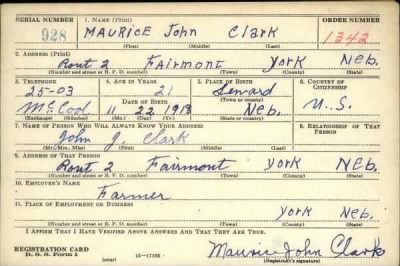 SERIAL NUMBER 1. NAME (Print) ORDER NUMBER
928 MAURICE John Clark 1342
(First) (Middle) (Last)
2. ADDRESS (Print)
Rout 2 Fairmont York Neb.
(Number and street or R. F. D. number) (Town) (County) (State)
3. TELEPHONE 4. AGE IN YEARS 5. PLACE OF BIRTH 6. COUNTRY OF CITIZENSHIP
25-03 21 Seward
DATE OF BIRTH (Town or county)
McCool 11 22 1918 Neb. U.S.
(Exchange) (Number) (Mo.) (Day) (Yr.) (State or country)
7. NAME OF PERSON WHO WILL ALWAYS KNOW YOUR ADDRESS 8. RELATIONSHIP OF THAT PERSON
John J. Clark
(Mr., Mrs., Miss) (First) (Middle) (Last)
9. ADDRESS OF THAT PERSON
Rout 2 Fairmont York Neb.
(Number and street or R. F. D. number) (Town) (County) (State)
10. EMPLOYER'S NAME
Farmer
11. PLACE OF EMPLOYMENT OR BUSINESS
York Neb.
(Number and street or R. F. D. number) (Town) (County) (State)
I AFFIRM THAT I HAVE VERIFIED ABOVE ANSWERS AND THAT THEY ARE TRUE.
REGISTRATION CARD
D. S. S. Form 1 (over) Maurice John Clark
(Registrant's signature)